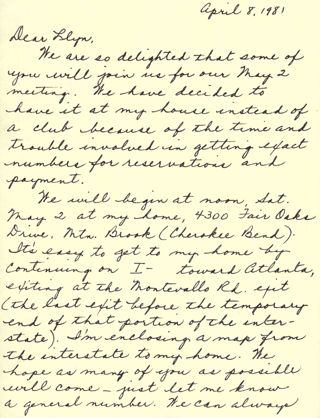 April 8, 1981
Dear Glyn,
We are so delighted that some of
you will join us for our May 2
meeting. We have decided to
have it at my house instead of
a club because of the time and
trouble involved in getting exact
numbers for reservations and
payment.
We will begin at noon, Sat.
May 2 at my home, 4300 Fair Oaks
Drive, Mtn. Brook (Cherokee Bend).
It's easy to get to my home by
continuing on I- toward Atlanta,
exiting at the Montevallo Rd. exit
(the last exit before the temporary
end of that portion of the inter-
state). I'm enclosing a map from
the interstate to my home. We
hope as many of you as possible
will come – just let me know
a general number. We can always